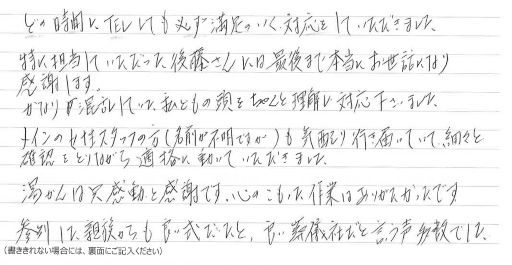 どの時間にTELしても必ず満足のいく対応をしていただきました。
特に担当していただった後藤さんには最後まで本当にお世話になり
感謝します。
かなり混乱していた私どもの頭をちゃんと理解し対応下さいました。
メインの女性スタッフの方(名前が不明ですが)も気配り行き届いていて、細々と
確認をとりながら適格に動いていただきました。
湯かんは只感動と感謝です。心のこもった作業はありがたかったです
参列した親族からも良い式だったと、良い葬儀社だと言う声多数でした。
(書ききれない場合には、裏面にご記入ください)